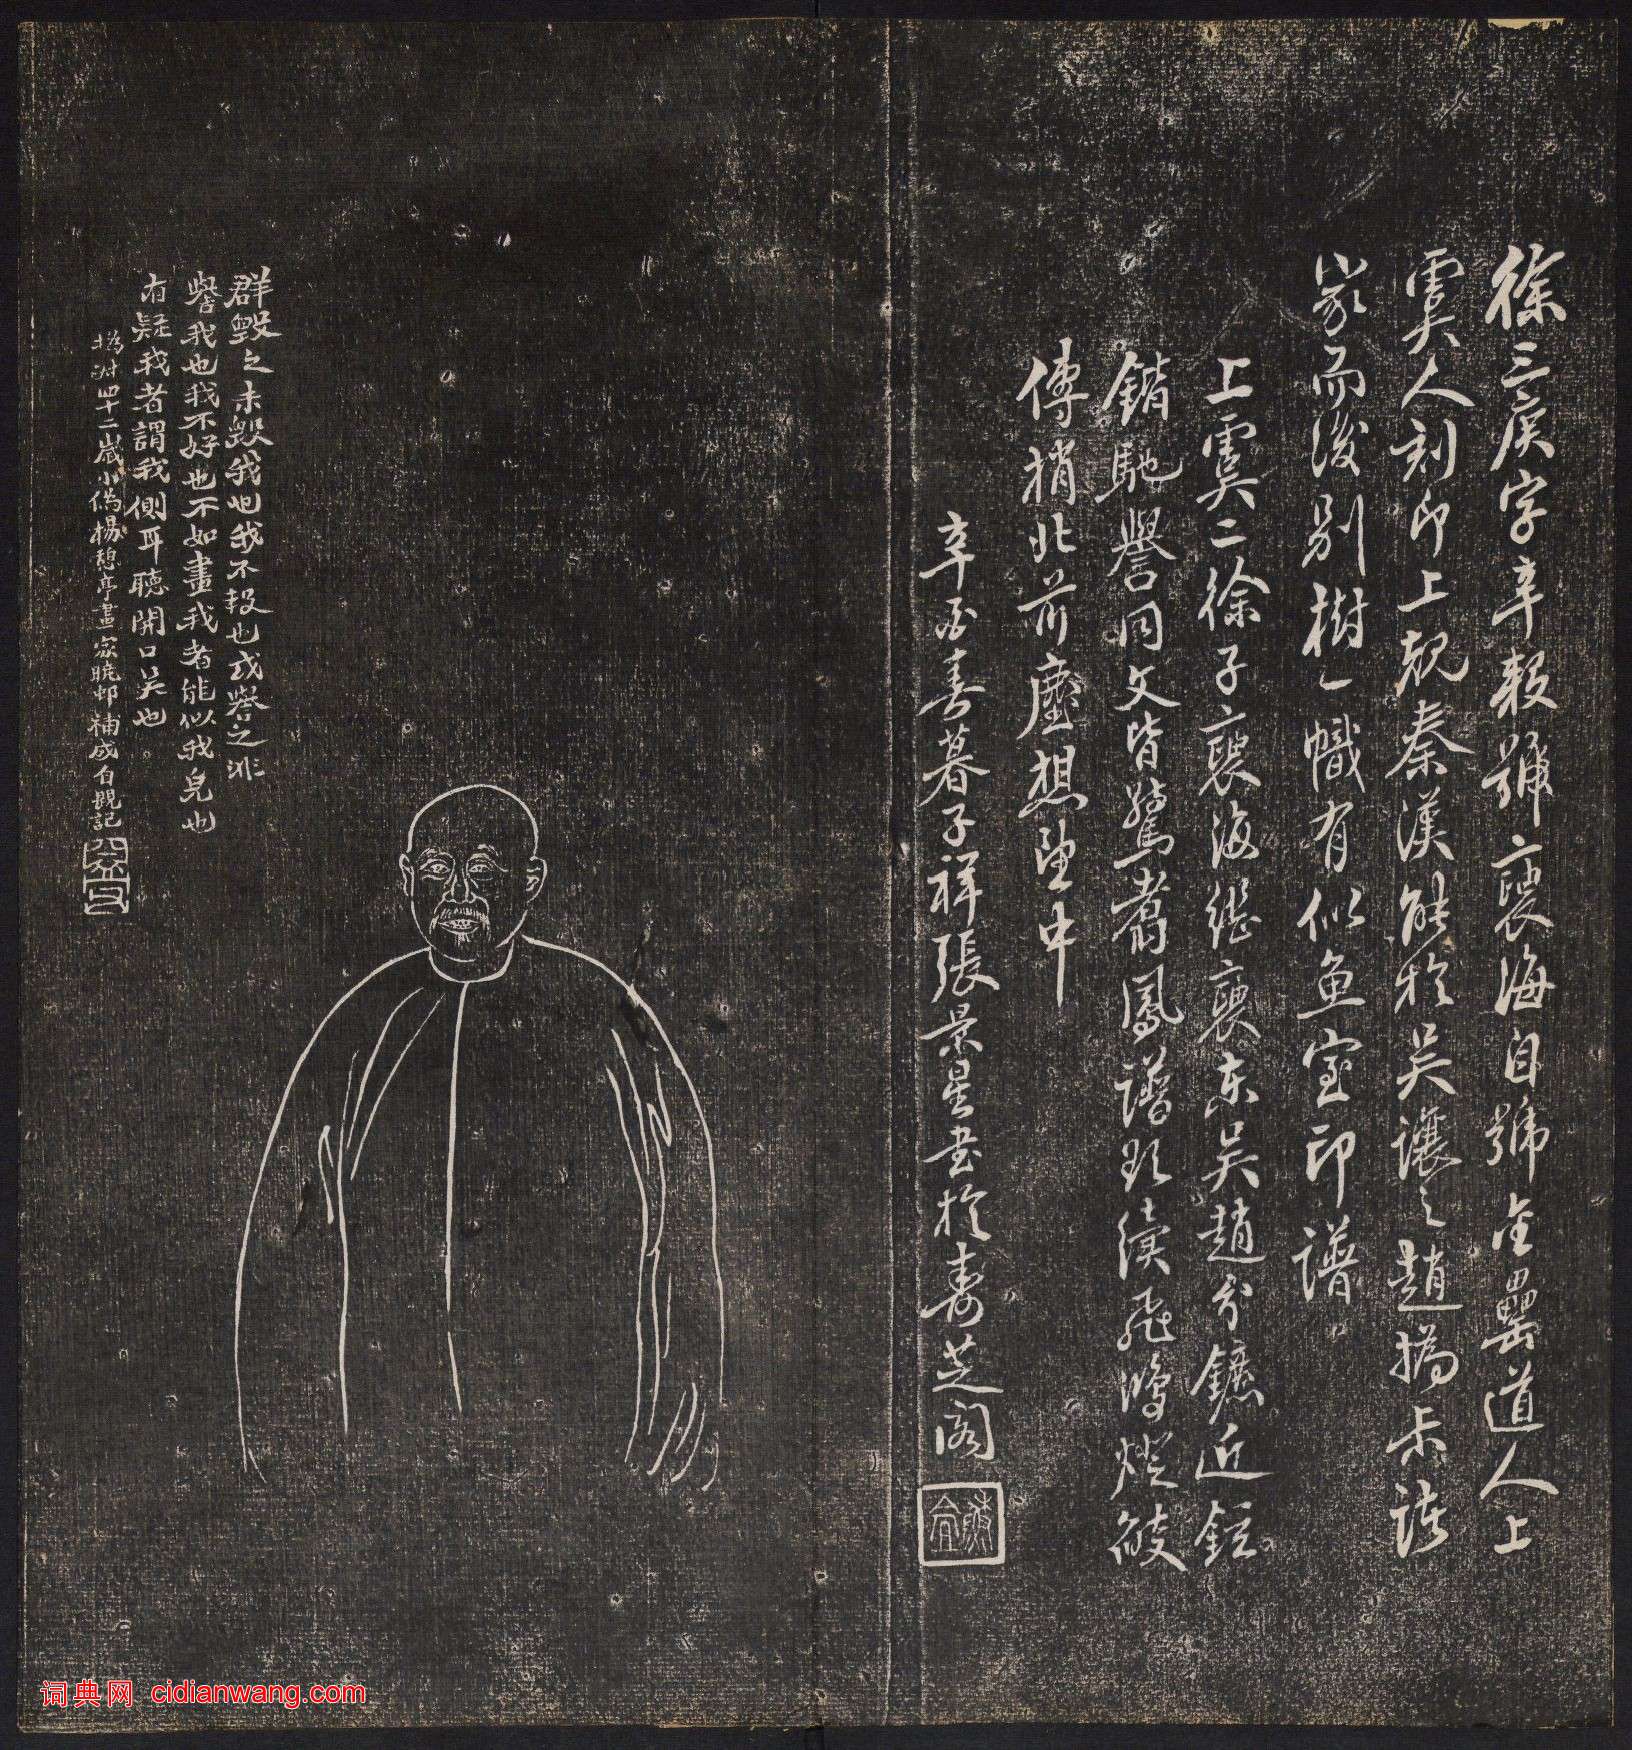 徐三庚字辛穀號褎海自號金罍道人上
虞人刻印上規秦漢能於吳讓之趙撝未諸
家而後別樹一幟有似魚室印譜
上虞二徐子褎海繼褎東吳趙分鑣近鋐
鍇馳譽同文皆驚鳳譜續飛鴻
傳指北前塵想望中
辛酉春暮子祥張景星書於壽芝閣
群毀之未毀我也我不毀也或譽之非
譽我也我不好也不如畫我者能似我皃也
有疑我者謂我側耳聽開口笑也
撝叔四十二歲小像楊憩亭畫家曉邨補成自題記
词典网 cidianwang.com